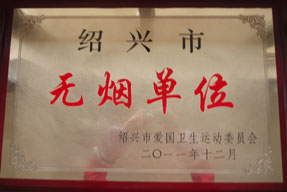 绍兴市
无烟单位
绍兴市爱国卫生运动委员会
二〇一一年十二月